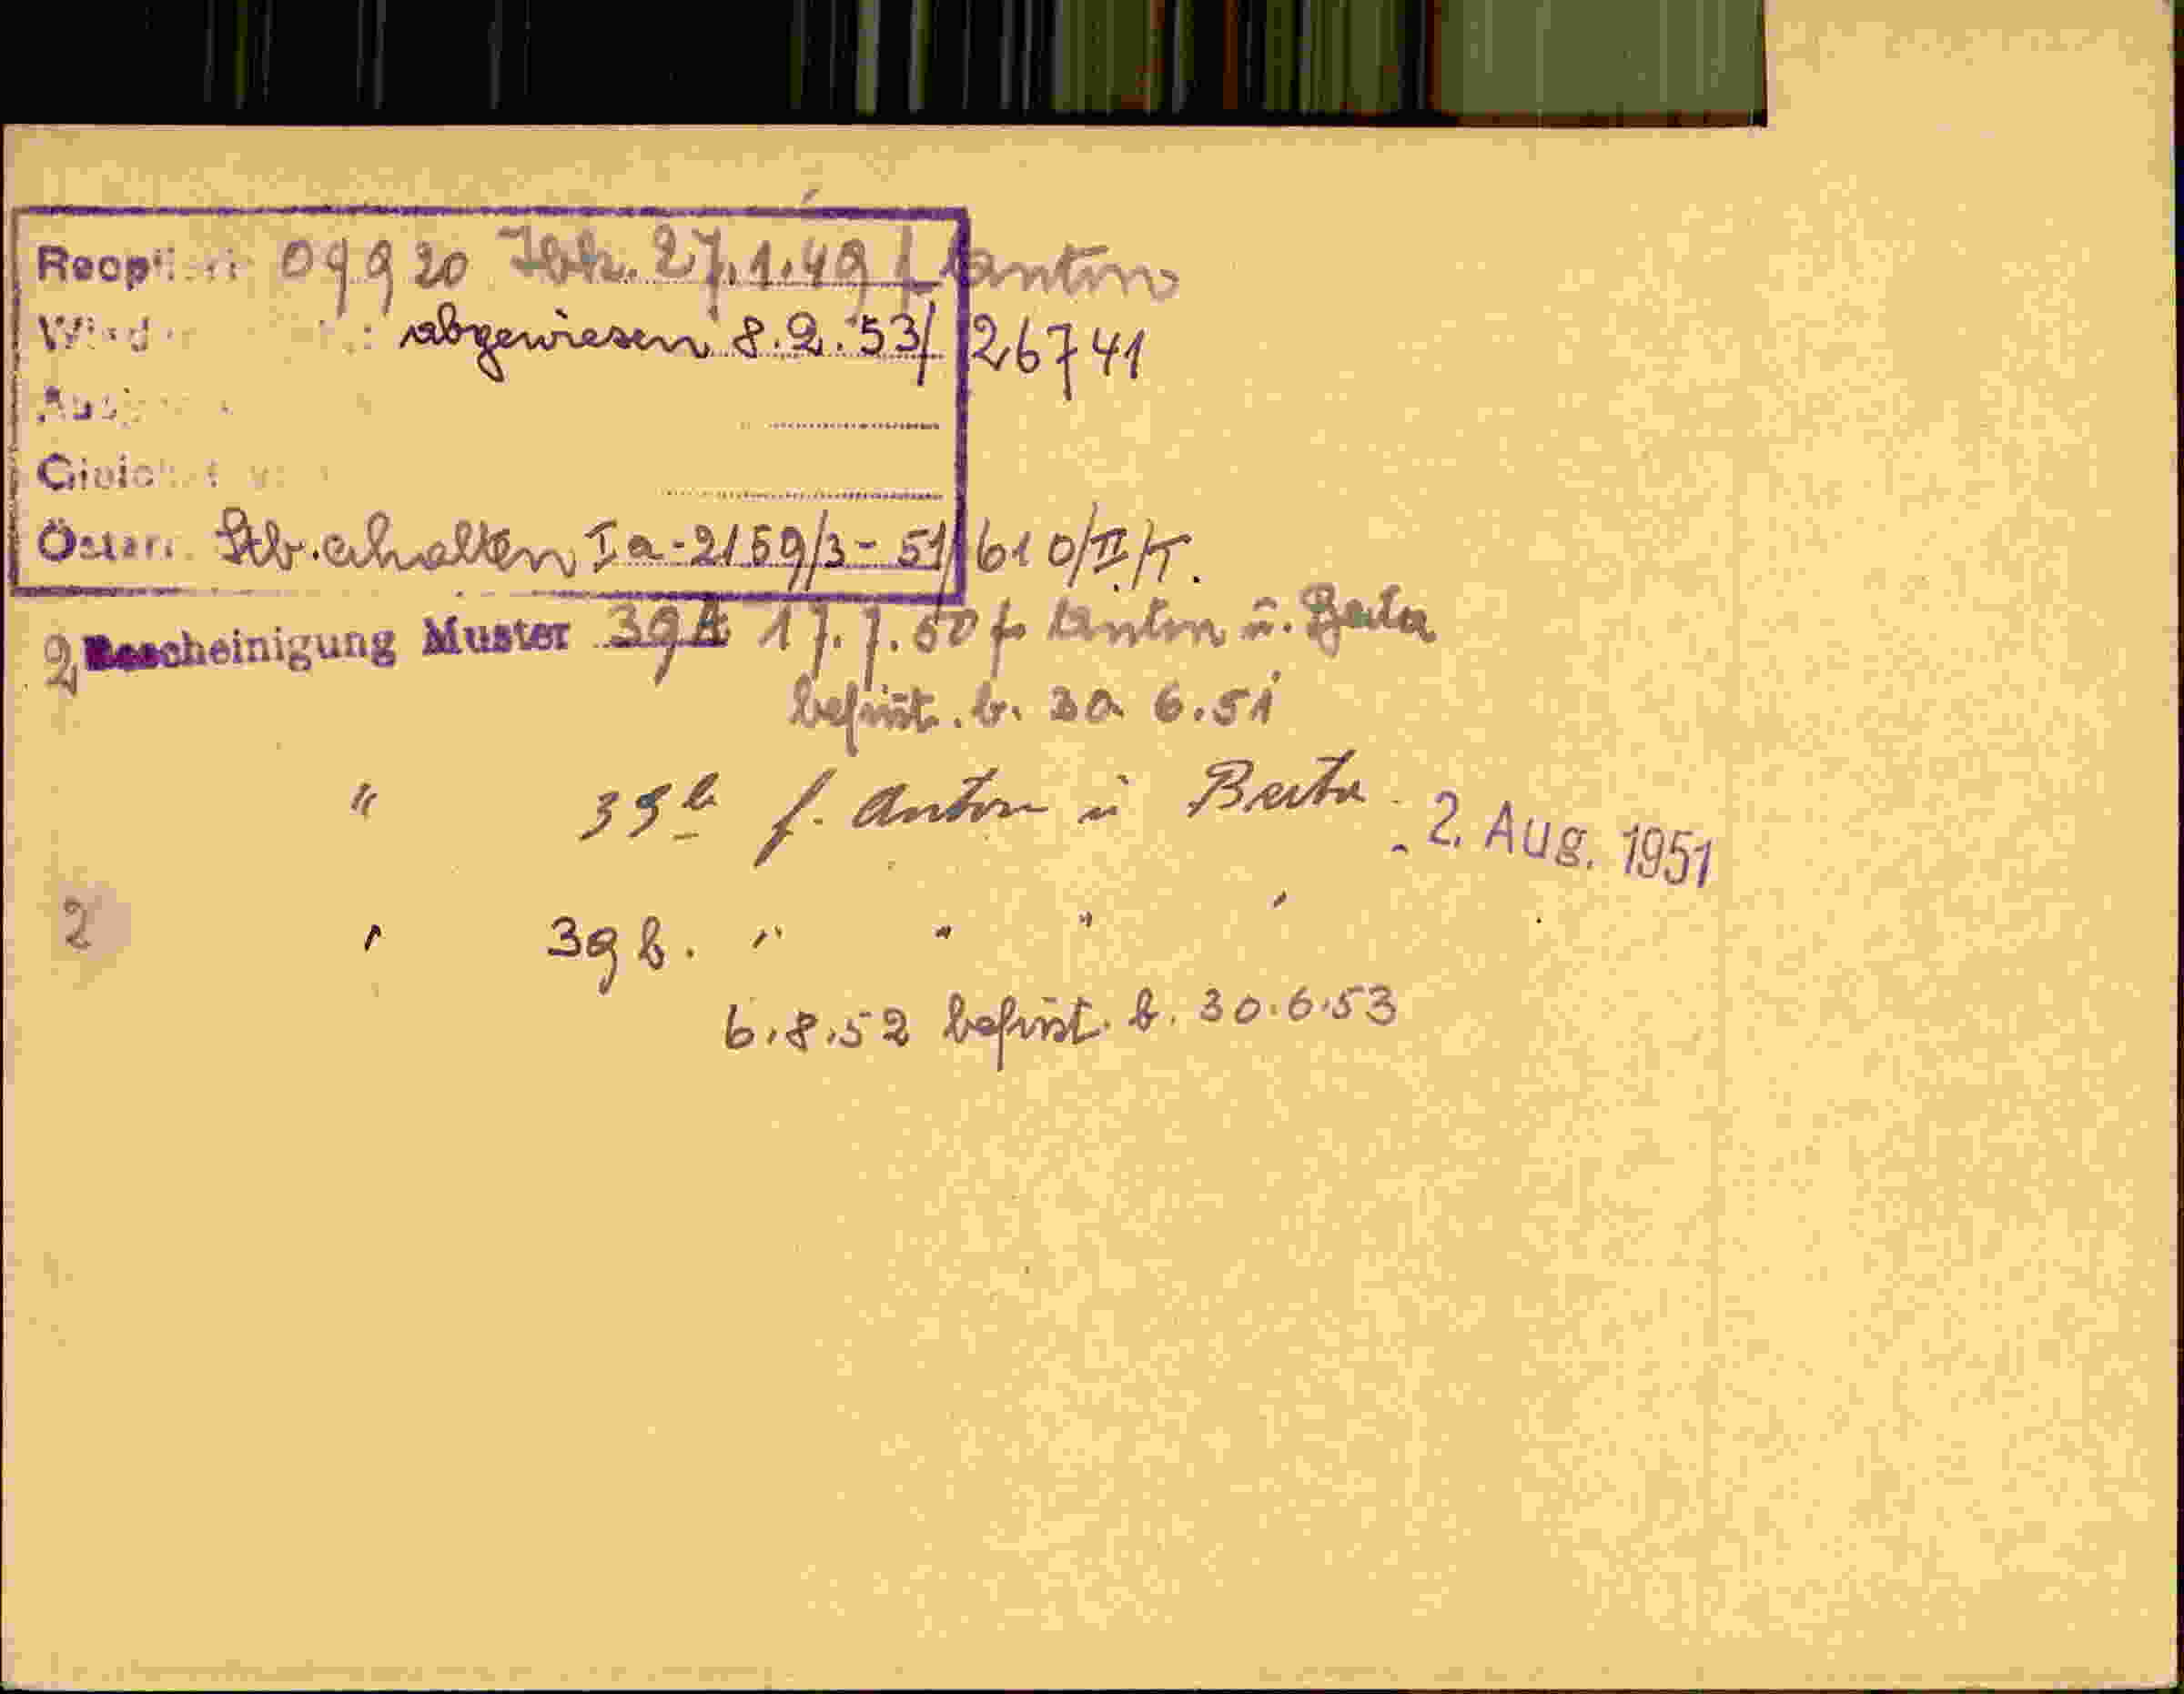 09920 Ibk. 27.1.49 f Anton
: abgewiesen 8.2.53/ 26741
Stb. erhalten Ia-2159/3-51/610/II/T.
2 Bescheinigung Muster 39A 17.7.50 f. Anton u. Berta
befrist. b. 30 6.51
" 39b f. Anton u Berta - 2. Aug. 1951
2 " 39 b. " " " "
6.8.52 befrist. b. 30.6.53